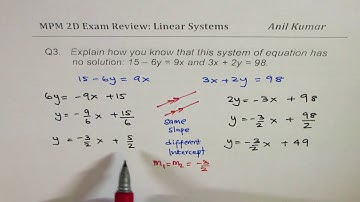 MPM 2D Exam Review: Linear Systems
Anil Kumar
Q3. Explain how you know that this system of equation has
no solution: 15 – 6y = 9x and 3x + 2y = 98.
15 - 6y = 9x
3x + 2y = 98
6y = -9x + 15
y = -9/6 x + 15/6
y = -3/2 x + 5/2
same
slope
different
intercept
m₁ = m₂ = -3/2
2y = -3x + 98
y = -3/2 x + 98/2
y = -3/2 x + 49